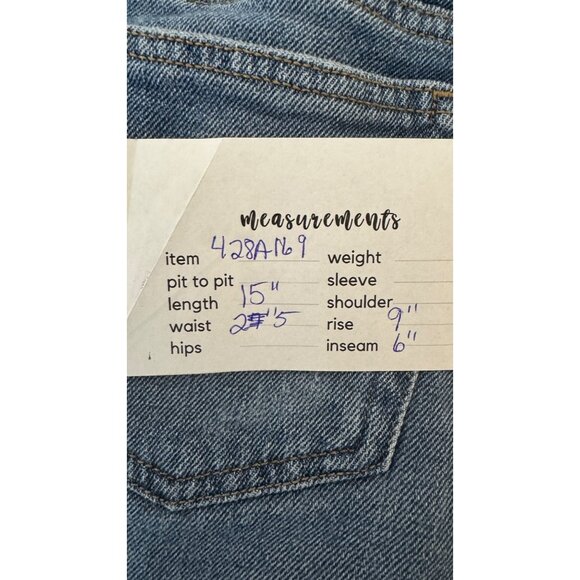 measurements
item 428A169 weight
pit to pit sleeve
length 15" shoulder
waist 2 "5 rise 9"
hips inseam 6"